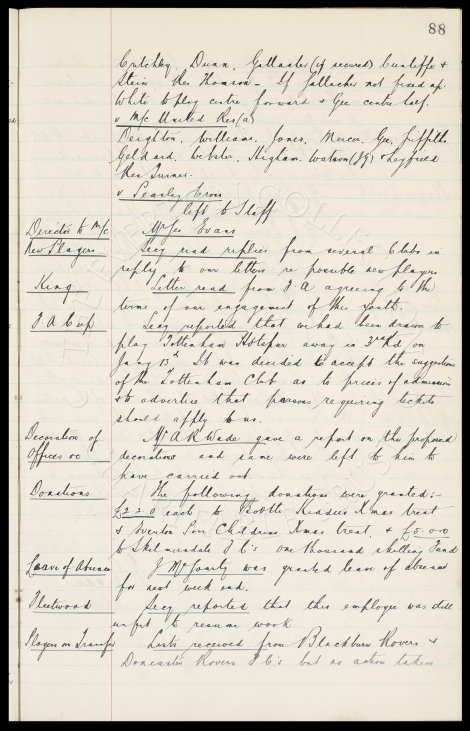 88
Critchley. Dunn. Gallacher (if secured) Cunliffe &
Stein Res Thomson - If Gallacher not fixed up
White to play centre forward & Gee centre half.
v M/c United Res (a)
Deighton. Williams. Jones. Mercer. Gee. Griffiths
Geldard. Webster. Higham. Watson (J.G) & Leyfield
Res Turner.
v Cross
left to Staff
Director to M/c Mr Geo Evans
New Players Secy read replies from several Clubs in
reply to our letters re possible new players
King Letter read from F A agreeing to the
terms of our engagement of this youth.
F A Cup Secy reported that we had been drawn to
play Tottenham Hotspur away in 3rd Rd. on
Jany 13th. It was decided to accept the suggestions
of the Tottenham Club as to prices of admission
& to advertise that persons requiring tickets
should apply to us.
Decoration of Mr A R Wade gave a report on the proposed
Offices &c decorations and same were left to him to
have carried out
Donations The following donations were granted:-
£2.2.0 each to Bootle Kiddies Xmas treat
& Everton Poor Childrens Xmas treat. & £5.0.0
to Skelmersdale F C's one thousand shilling Fund
Leave of Absence J McGourty was granted leave of absence
for next week end.
Fleetwood Secy reported that this employee was still
unfit to resume work
Players on Transfer Lists received from Blackburn Rovers &
Doncaster Rovers F C's but no action taken